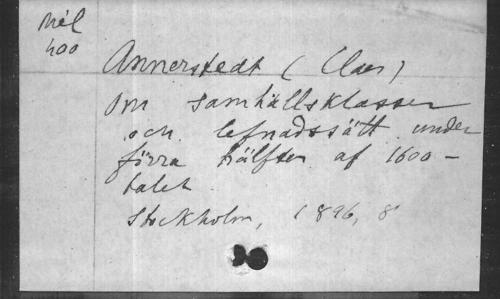 Mél
400
Annerstedt (Claes)
Om samhällsklasser
och lefnadssätt under
förra hälften af 1600-
talet
Stockholm, 1896, 8°